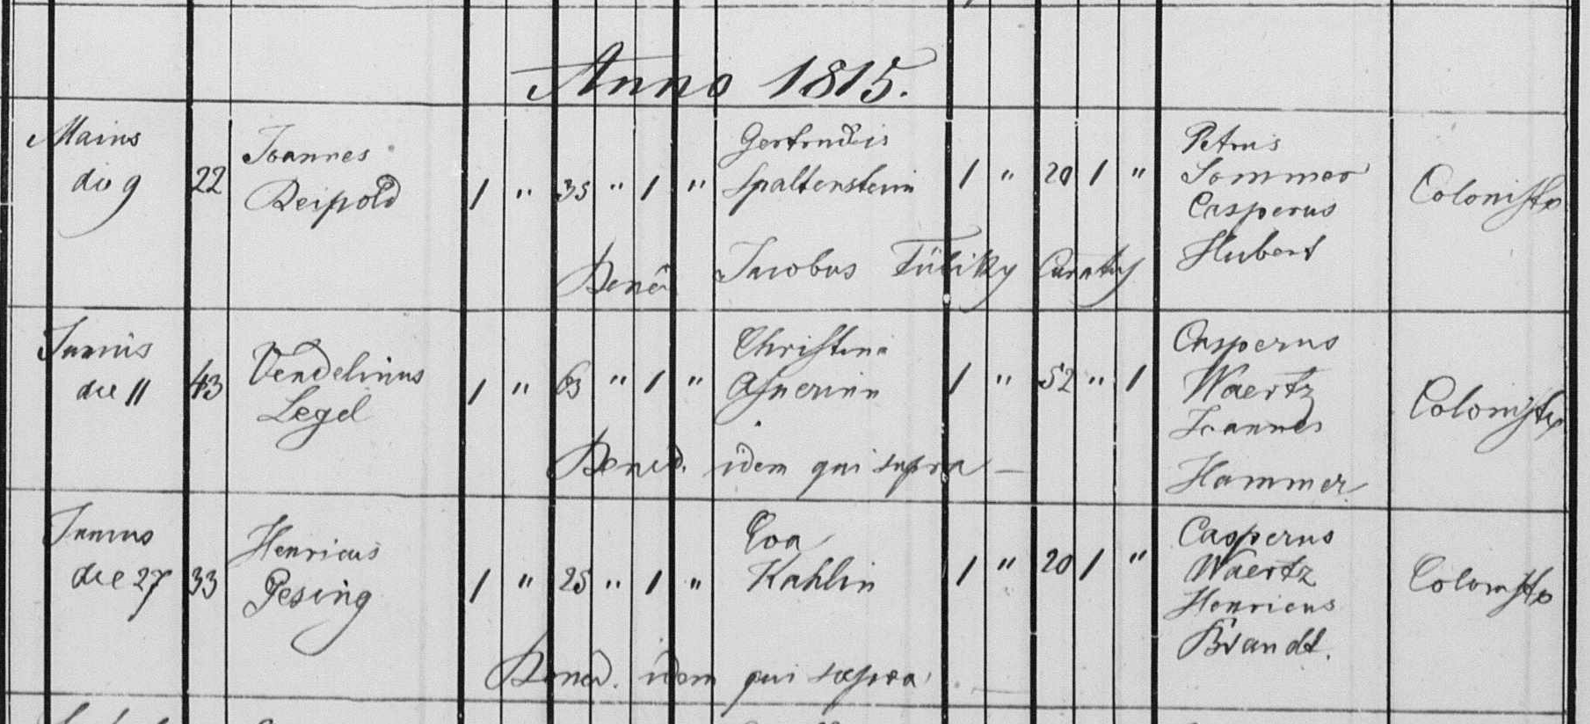 Anno 1815.
Maius
die 9
22
Joannes
Reipold
1 " 35 " 1 "
Gertrudis
Spaltenstein
1 " 20 1 "
Petrus
Sommer
Casperus
Hubert
Colonistæ
Bened. Jacobus Curatus
Junius
die 11
43
Vendelinus
Legel
1 " 63 " 1 "
Christina
1 " 52 " 1
Casperus
Waertz
Joannes
Hammer
Colonistæ
Bened. idem qui supra —
Junius
die 27
33
Henricus
Pesing
1 " 25 " 1 "
Eva
Kahlin
1 " 20 1 "
Casperus
Waertz
Henricus
Brandt.
Colonistæ
Bened. idem qui supra